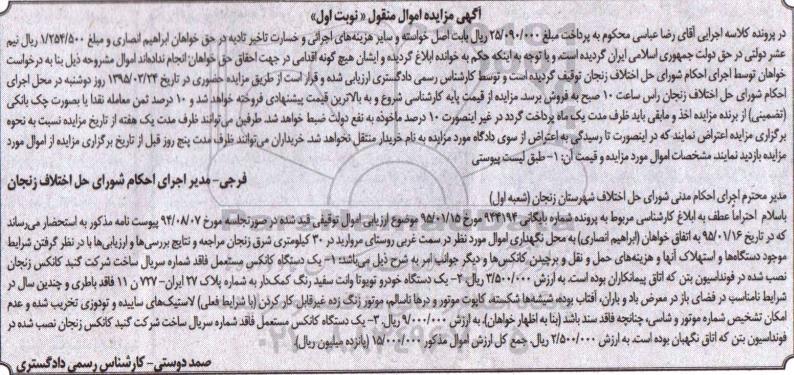 آگهی مزایده اموال منقول « نوبت اول»
در پرونده کلاسه اجرایی آقای رضا عباسی محکوم به پرداخت مبلغ ۲۵/۰۹۰/۰۰۰ ریال بابت اصل خواسته و سایر هزینه‌های اجرائی و خسارت تاخیر تادیه در حق خواهان ابراهیم انصاری و مبلغ ۱/۲۵۴/۵۰۰ ریال نیم
عشر دولتی در حق دولت جمهوری اسلامی ایران گردیده است. و با توجه به اینکه حکم به خوانده ابلاغ گردیده و ایشان هیچ گونه اقدامی در جهت احقاق حق خواهان انجام نداده‌اند اموال مشروحه ذیل بنا به درخواست
خواهان توسط اجرای احکام شورای حل اختلاف زنجان توقیف گردیده است و توسط کارشناس رسمی دادگستری ارزیابی شده و قرار است از طریق مزایده حضوری در تاریخ ۱۳۹۵/۰۳/۲۴ روز دوشنبه در محل اجرای
احکام شورای حل اختلاف زنجان راس ساعت ۱۰ صبح به فروش برسد. مزایده از قیمت پایه کارشناسی شروع و به بالاترین قیمت پیشنهادی فروخته خواهد شد و ۱۰ درصد ثمن معامله نقدا یا بصورت چک بانکی
(تضمینی) از برنده مزایده اخذ و مابقی باید ظرف مدت یک ماه پرداخت گردد در غیر اینصورت ۱۰ درصد ماخوذه به نفع دولت ضبط خواهد شد. طرفین می‌توانند ظرف مدت یک هفته از تاریخ مزایده نسبت به نحوه
برگزاری مزایده اعتراض نمایند که در اینصورت تا رسیدگی به اعتراض از سوی دادگاه مورد مزایده به نام خریدار منتقل نخواهد شد. خریداران می‌توانند ظرف مدت پنج روز قبل از تاریخ برگزاری مزایده از اموال مورد
مزایده بازدید نمایند. مشخصات اموال مورد مزایده و قیمت آن: ۱- طبق لیست پیوستی
فرجی- مدیر اجرای احکام شورای حل اختلاف زنجان
مدیر محترم اجرای احکام مدنی شورای حل اختلاف شهرستان زنجان (شعبه اول)
باسلام احتراما عطف به ابلاغ کارشناسی مربوط به پرونده شماره بایگانی ۹۳۴۱۹۴ مورخ ۹۵/۰۱/۱۵ موضوع ارزیابی اموال توقیفی قید شده در صورتجلسه مورخ ۹۴/۰۸/۰۷ پیوست نامه مذکور به استحضار می‌رساند
که در تاریخ ۹۵/۰۱/۱۶ به اتفاق خواهان (ابراهیم انصاری) به محل نگهداری اموال مورد نظر در سمت غربی روستای مروارید در ۳۰ کیلومتری شرق زنجان مراجعه و نتایج بررسی‌ها و ارزیابی‌ها با در نظر گرفتن شرایط
موجود دستگاه‌ها و استهلاک آنها و هزینه‌های حمل و نقل و برچیدن کانکس‌ها و دیگر جوانب امر به شرح ذیل می‌باشد: ۱- یک دستگاه کانکس مستعمل فاقد شماره سریال ساخت شرکت گنبد کانکس زنجان
نصب شده در فونداسیون بتن که اتاق پیمانکاران بوده است. به ارزش ۳/۵۰۰/۰۰۰ ریال. ۲- یک دستگاه خودرو تویوتا وانت سفید رنگ کمک‌دار به شماره پلاک ۲۷ ایران- ۷۲۷ ن ۱۱ فاقد باطری و چندین سال در
شرایط نامناسب در فضای باز در معرض باد و باران، آفتاب بوده، شیشه‌ها شکسته، کاپوت موتور و درها ناسالم، موتور زنگ زده غیرقابل کار کردن (با شرایط فعلی) لاستیک‌های ساییده و تودوزی تخریب شده و عدم
امکان تشخیص شماره موتور و شاسی، چنانچه فاقد سند باشد (بنا به اظهار خواهان). به ارزش ۹/۰۰۰/۰۰۰ ریال. ۳- یک دستگاه کانکس مستعمل فاقد شماره سریال ساخت شرکت گنبد کانکس زنجان نصب شده در
فونداسیون بتن که اتاق نگهبان بوده است. به ارزش ۲/۵۰۰/۰۰۰ ریال. جمع کل ارزش اموال مذکور ۱۵/۰۰۰/۰۰۰ (پانزده میلیون ریال).
صمد دوستی- کارشناس رسمی دادگستری